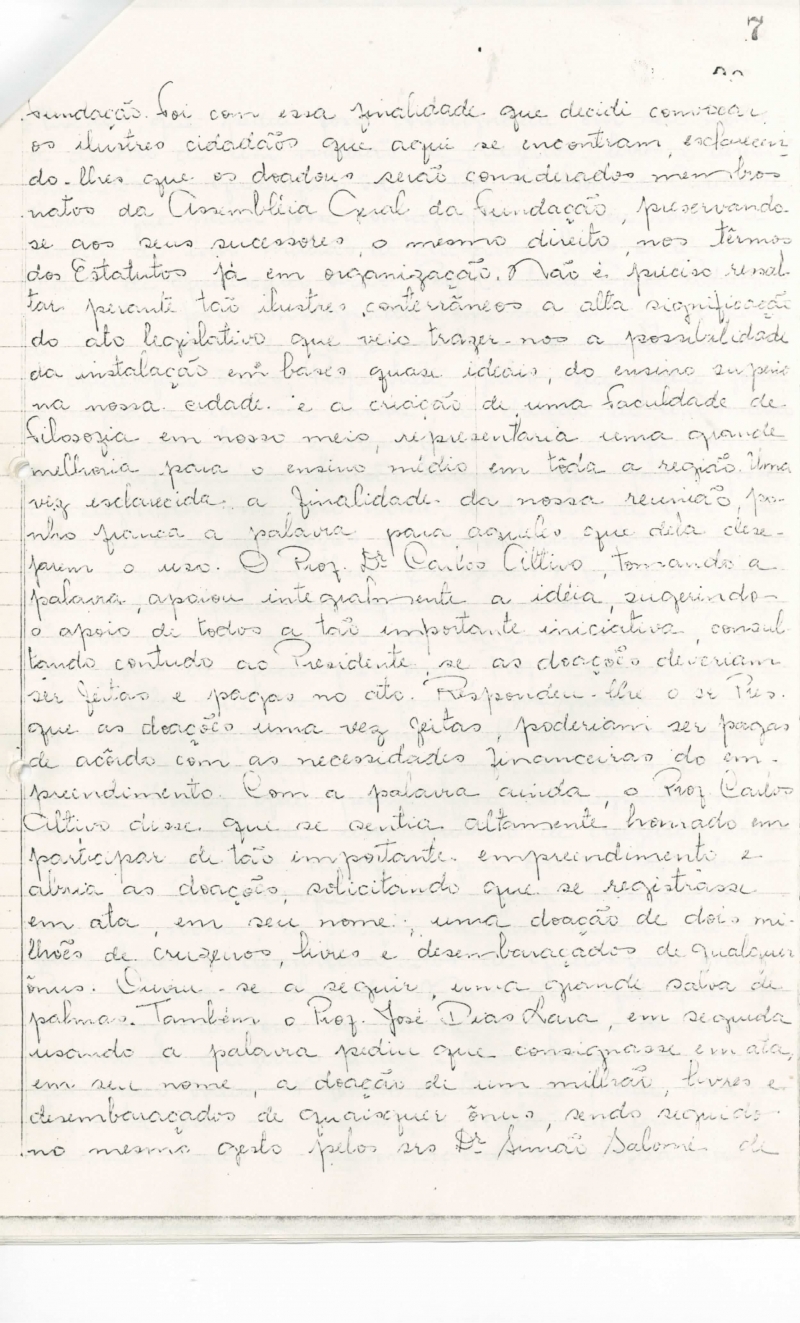 7
Fundação. Foi com essa finalidade que decidi convocar
os ilustres cidadãos que aqui se encontram, esclarecen-
do-lhes que os doadores serão considerados membros
natos da Assembléia Geral da Fundação, preservando-
se aos seus sucessores, o mesmo direito, nos têrmos
dos Estatutos já em organização. Não é preciso ressal
tar, perante tão ilustres conterrâneos a alta significação
do ato legislativo que veio trazer-nos a possibilidade
da instalação em bases quase ideais, do ensino superior
na nossa cidade e a criação de uma Faculdade de
Filosofia em nosso meio, representaria uma grande
melhoria para o ensino médio em tôda a região. Uma
vez esclarecida a finalidade da nossa reunião, po-
nho franca a palavra para aqueles que dela dese-
jarem o uso. O Prof. Dr Carlos Altivo, tomando a
palavra, apoiou integralmente a idéia, sugerindo-
o apoio de todos a tão importante iniciativa, consul
tando contudo ao Presidente, se as doações deveriam
ser feitas e pagas no ato. Respondeu-lhe o sr Pres.
que as doações uma vez feitas, poderiam ser pagas
de acôrdo com as necessidades financeiras do em-
preendimento. Com a palavra ainda, o Prof Carlos
Altivo disse que se sentia altamente honrado em
participar de tão importante empreendimento e
abria as doações, solicitando que se registrasse
em ata, em seu nome, uma doação de dois mi-
lhões de cruzeiros, livres e desembaraçados de qualquer
ônus. Ouviu-se a seguir, uma grande salva de
palmas. Também o Prof. José Dias Lara, em seguida
usando a palavra pediu que consignasse em ata,
em seu nome, a doação de um milhão, livres e
desembaraçados de quaisquer ônus, sendo seguido
no mesmo gesto pelos srs Dr Simão Salomé de